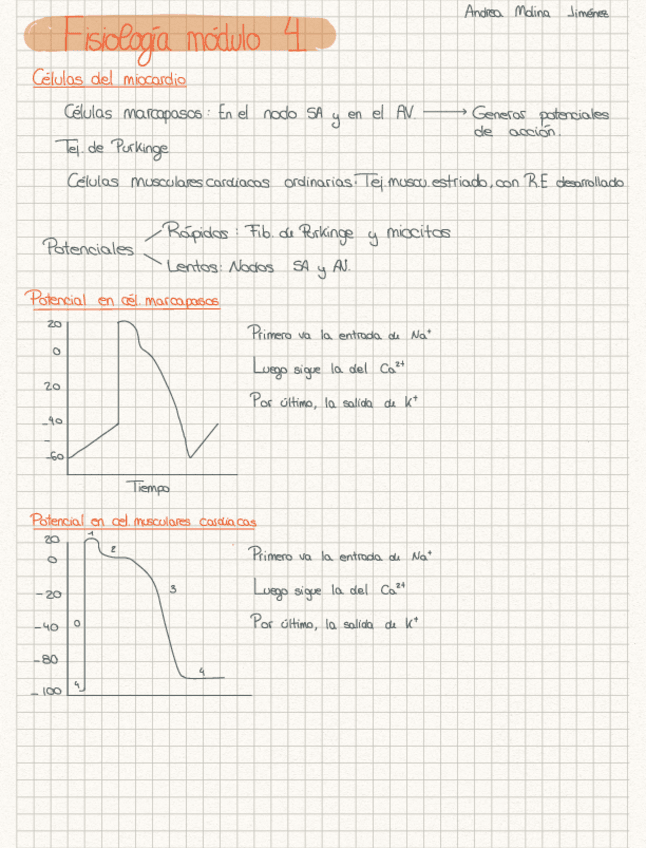 Andrea Molina Jiménez
Fisiología módulo 4
Células del miocardio
Células marcapasos: En el nodo SA y en el AV. → Generar potenciales
de acción.
Tej. de Purkinge
Células musculares cardiacas ordinarias. Tej. muscu. estriado, con RE desarrollado
Potenciales
Rápidos: Fib. de Purkinge y miocitos
Lentos: Nodos SA y AV.
Potencial en cél. marcapasos
20
0
20
-40
-
-60
Tiempo
Primero va la entrada de Na⁺
Luego sigue la del Ca²⁺
Por último, la salida de K⁺
Potencial en cel. musculares cardiacas
20
0
-20
-40
-80
-100
1
2
3
0
4
4
Primero va la entrada de Na⁺
Luego sigue la del Ca²⁺
Por último, la salida de K⁺